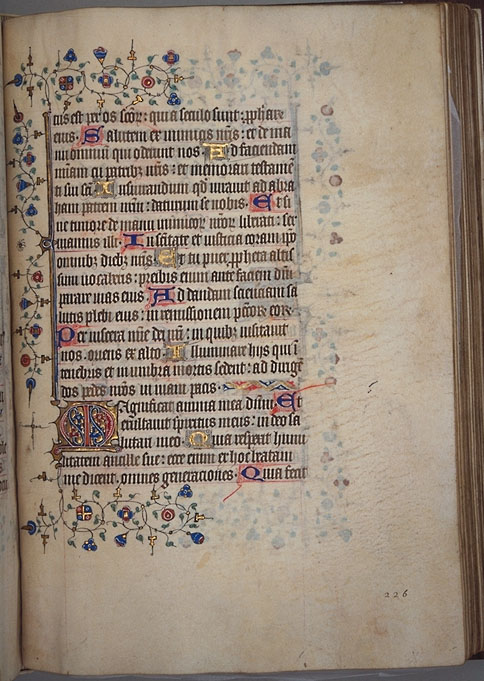 tus est per os scōr: qui a seculo sunt: pphare
eius. Salutem ex inimicis nr̄is: et de ma
nu omnium qui oderunt nos. Ad faciendam
miam cū patribz nr̄is: et memorari testamē
ti sui sc̄i. Iusiurandum qd̄ iurauit ad abra
ham patrem nr̄m: daturum se nobis. Et si
ne timore de manu inimicor nr̄or liberati: ser
uiamus illi. In sc̄itate et iusticia coram ip̄o
omnibz diebz nr̄is. Et tu puer ppheta altis
simi uocaberis: preibis enim ante faciem dn̄i
parare uias eius. Ad dandam scienciam sa
lutis plebi eius: in remissionem pctōr eor.
Per uiscera mīe dei nr̄i: in quibz uisitauit
nos. oriens ex alto. Illuminare hijs qui ī
tenebris et in umbra mortis sedent: ad dirigē
dos pedes nr̄os in uiam pacis.
Magnificat anima mea dn̄m. Et
exultauit spiritus meus: in deo sa
lutari meo. Quia respexit humi
litatem ancille sue: ecce enim ex hoc beatam
me dicent. omnes generaciones. Quia fecit
226